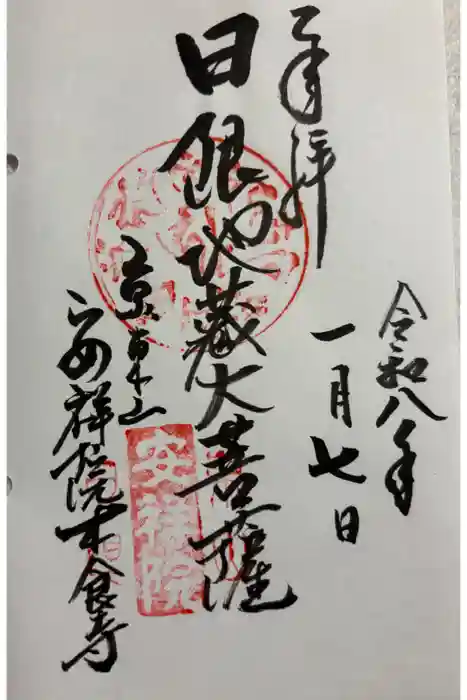 奉拝
令和八年
一月七日
日限地蔵大菩薩
京東山
安祥院木食寺
安祥院